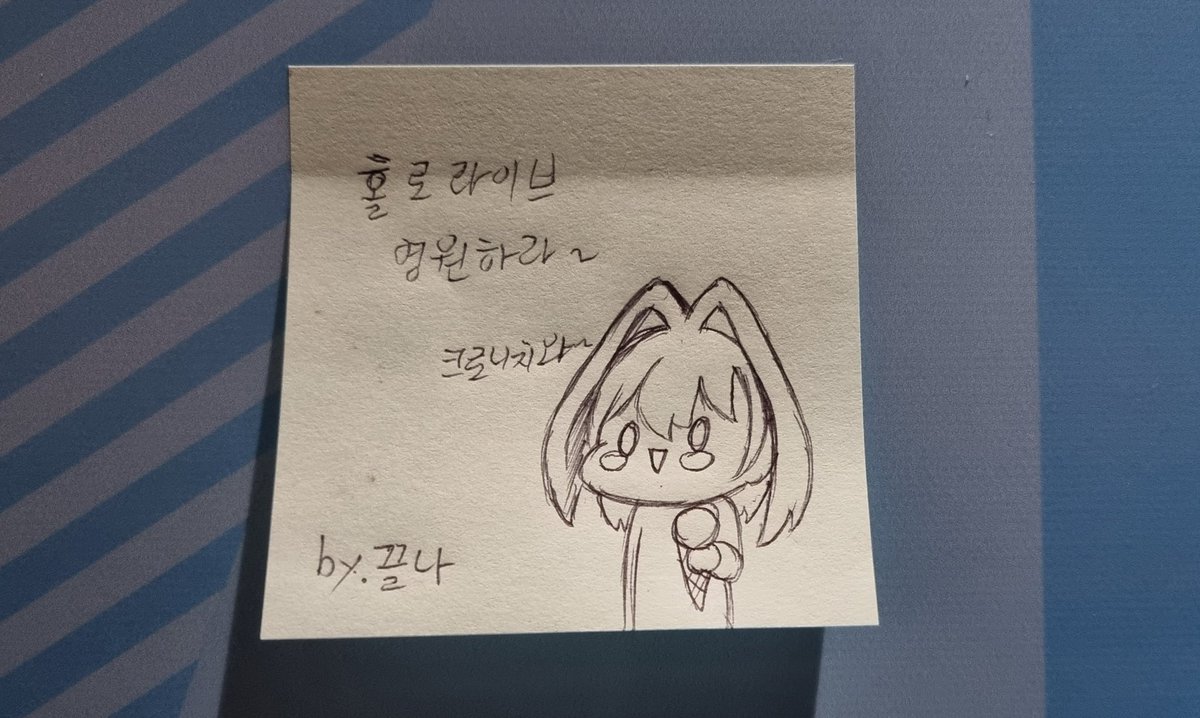 홀로라이브
영원하라~
크로니치와~
by.끌나